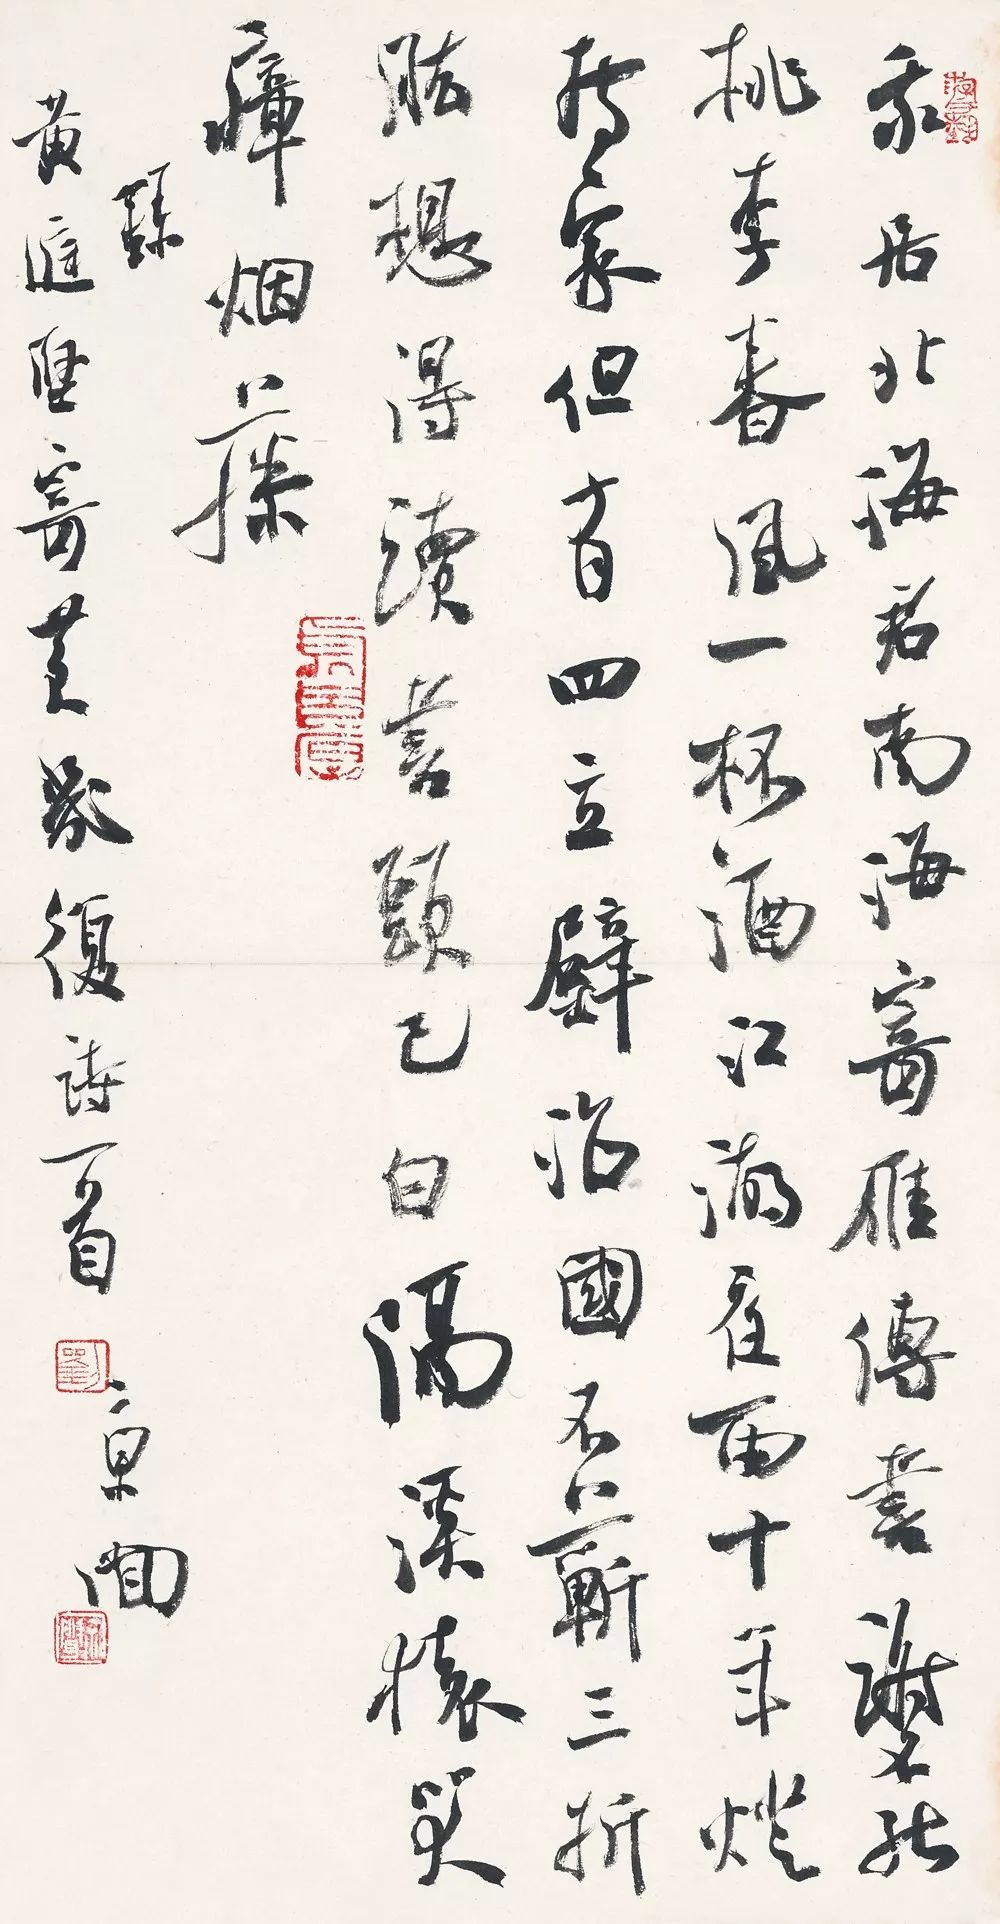 我居北海君南海寄雁傳書謝不能
桃李春風一杯酒江湖夜雨十年燈
持家但有四立壁治國不蘄三折
肱想得讀書頭已白隔溪猿哭
瘴烟藤
黄庭堅寄黄幾復詩一首